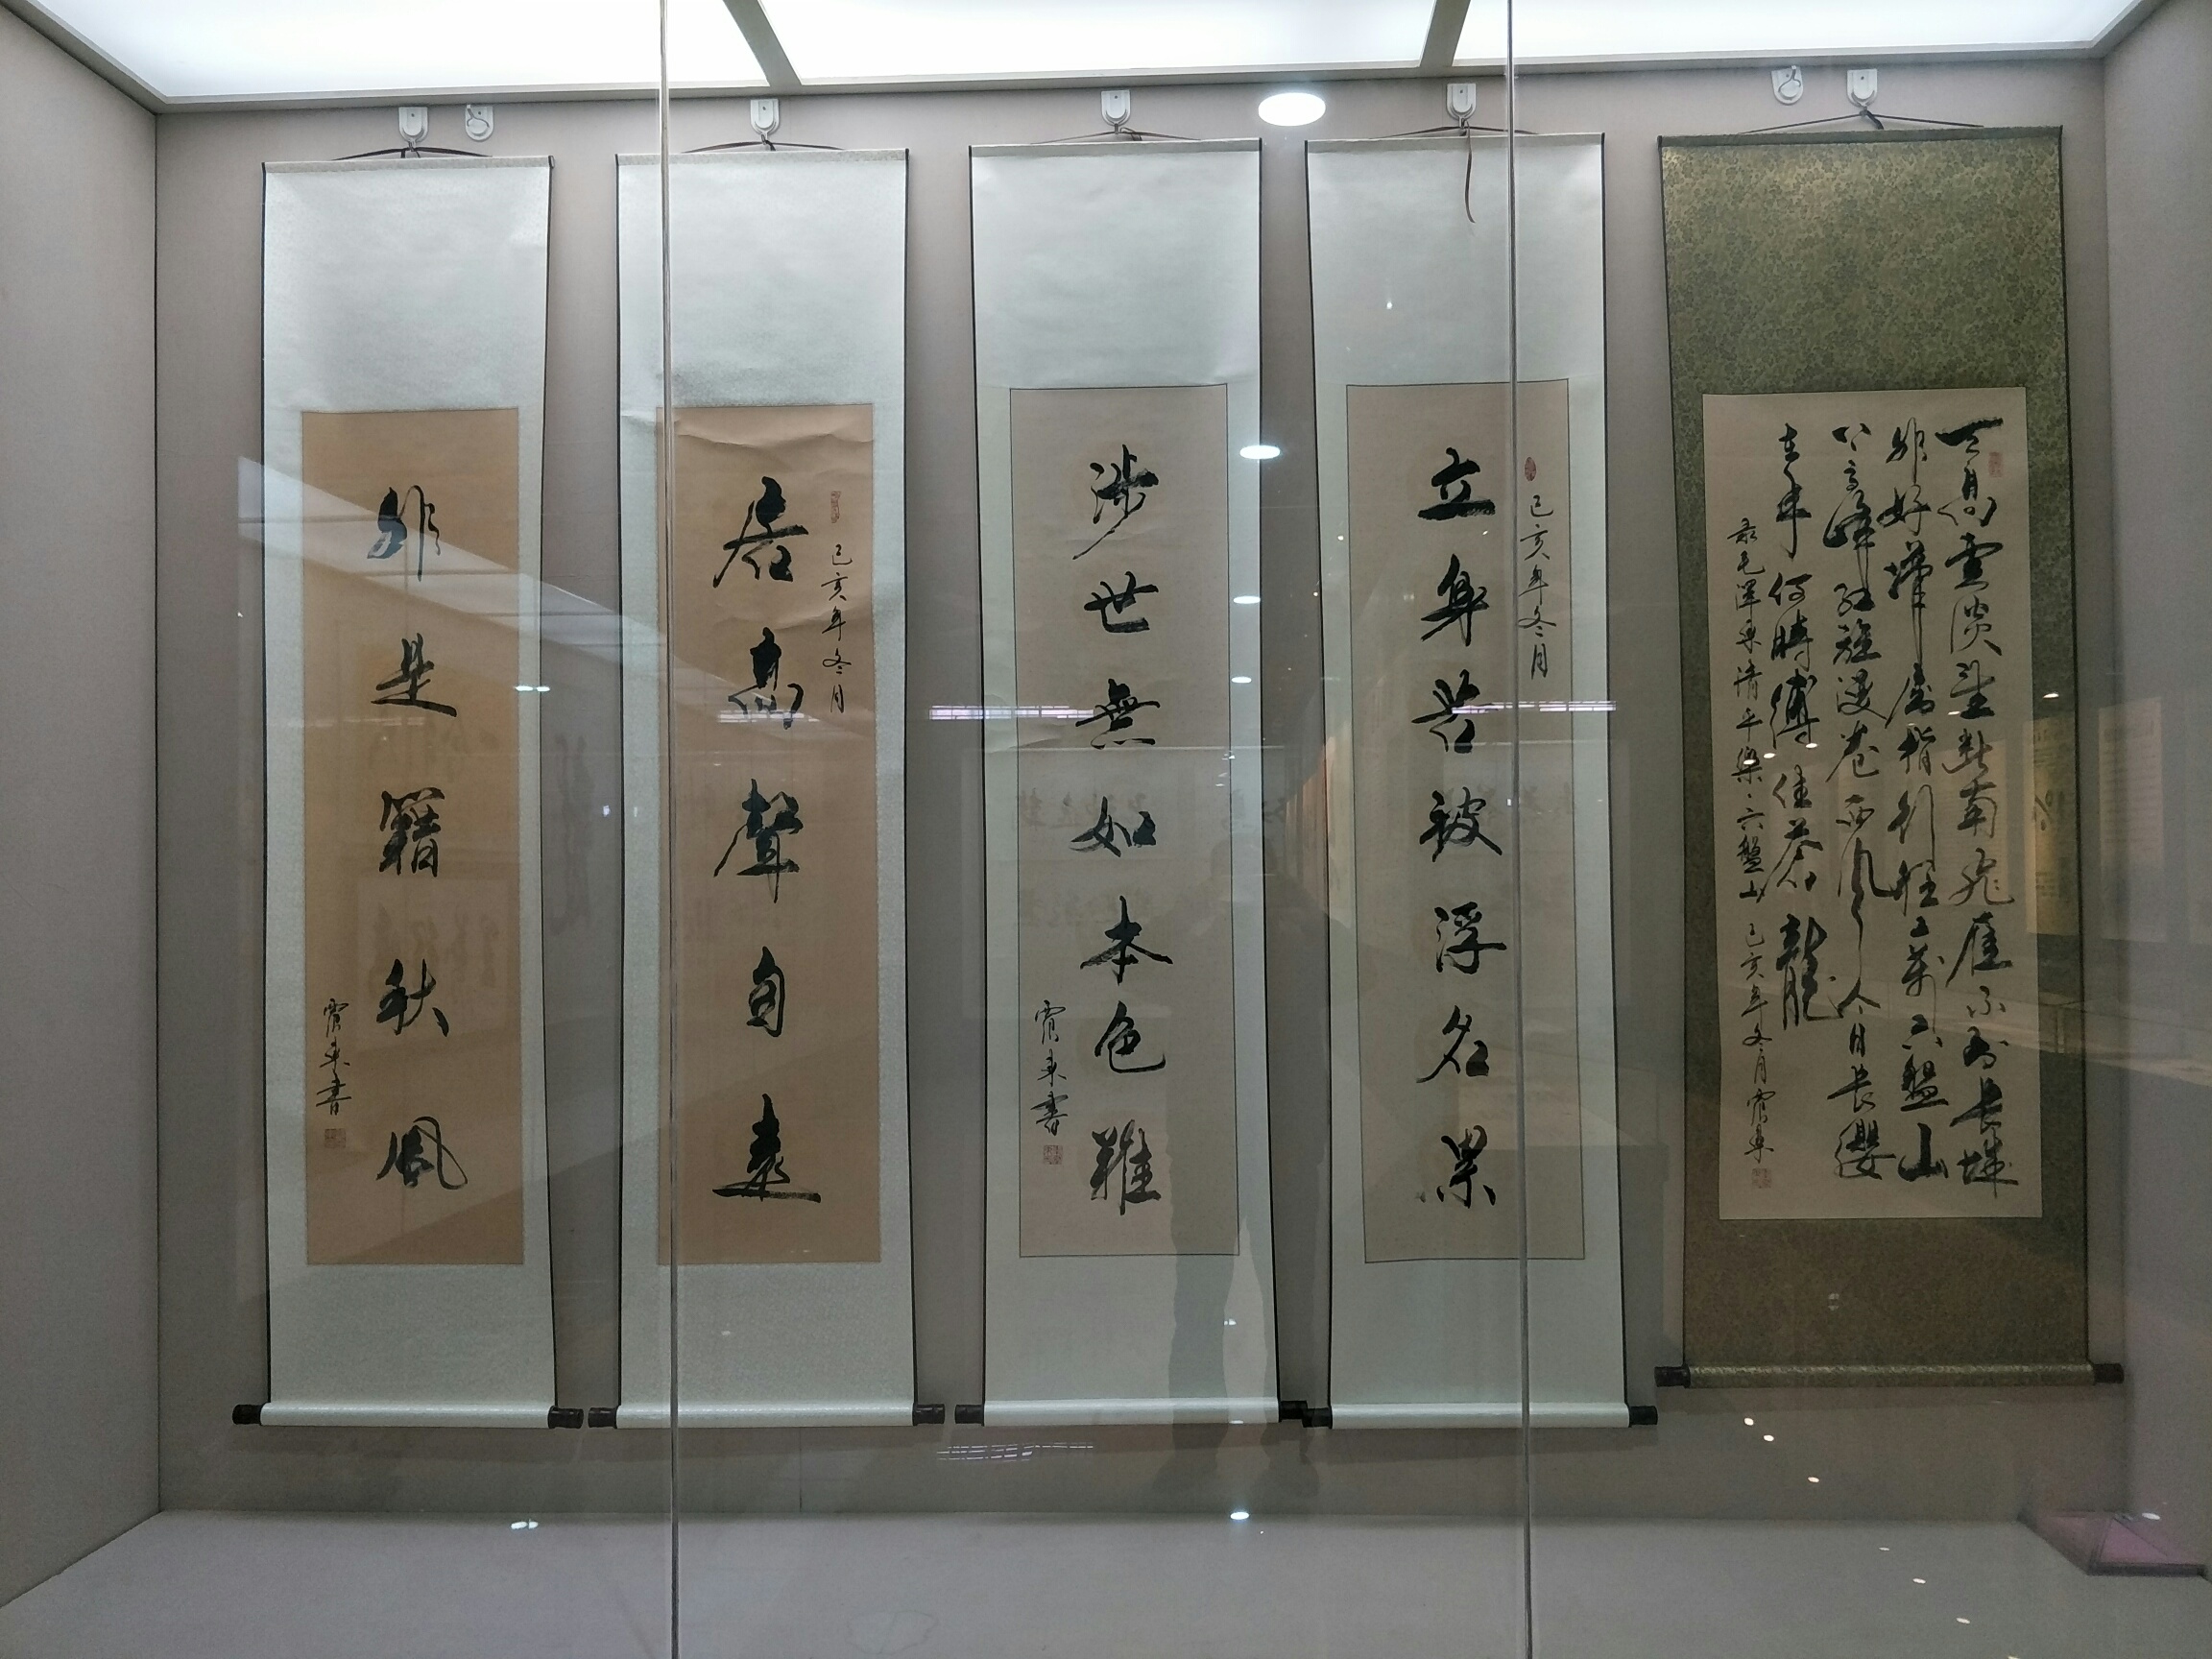 天高雲淡望斷南飛雁不到長城
非好漢屈指行程二萬六盤山
上高峰紅旗漫卷西風今日長纓
在手何時縛住蒼龍
录毛澤東清平樂·六盤山 己亥年冬月
己亥年冬月
立身苦被浮名累
涉世無如本色難
書
己亥年冬月
居高聲自遠
非是籍秋風
書